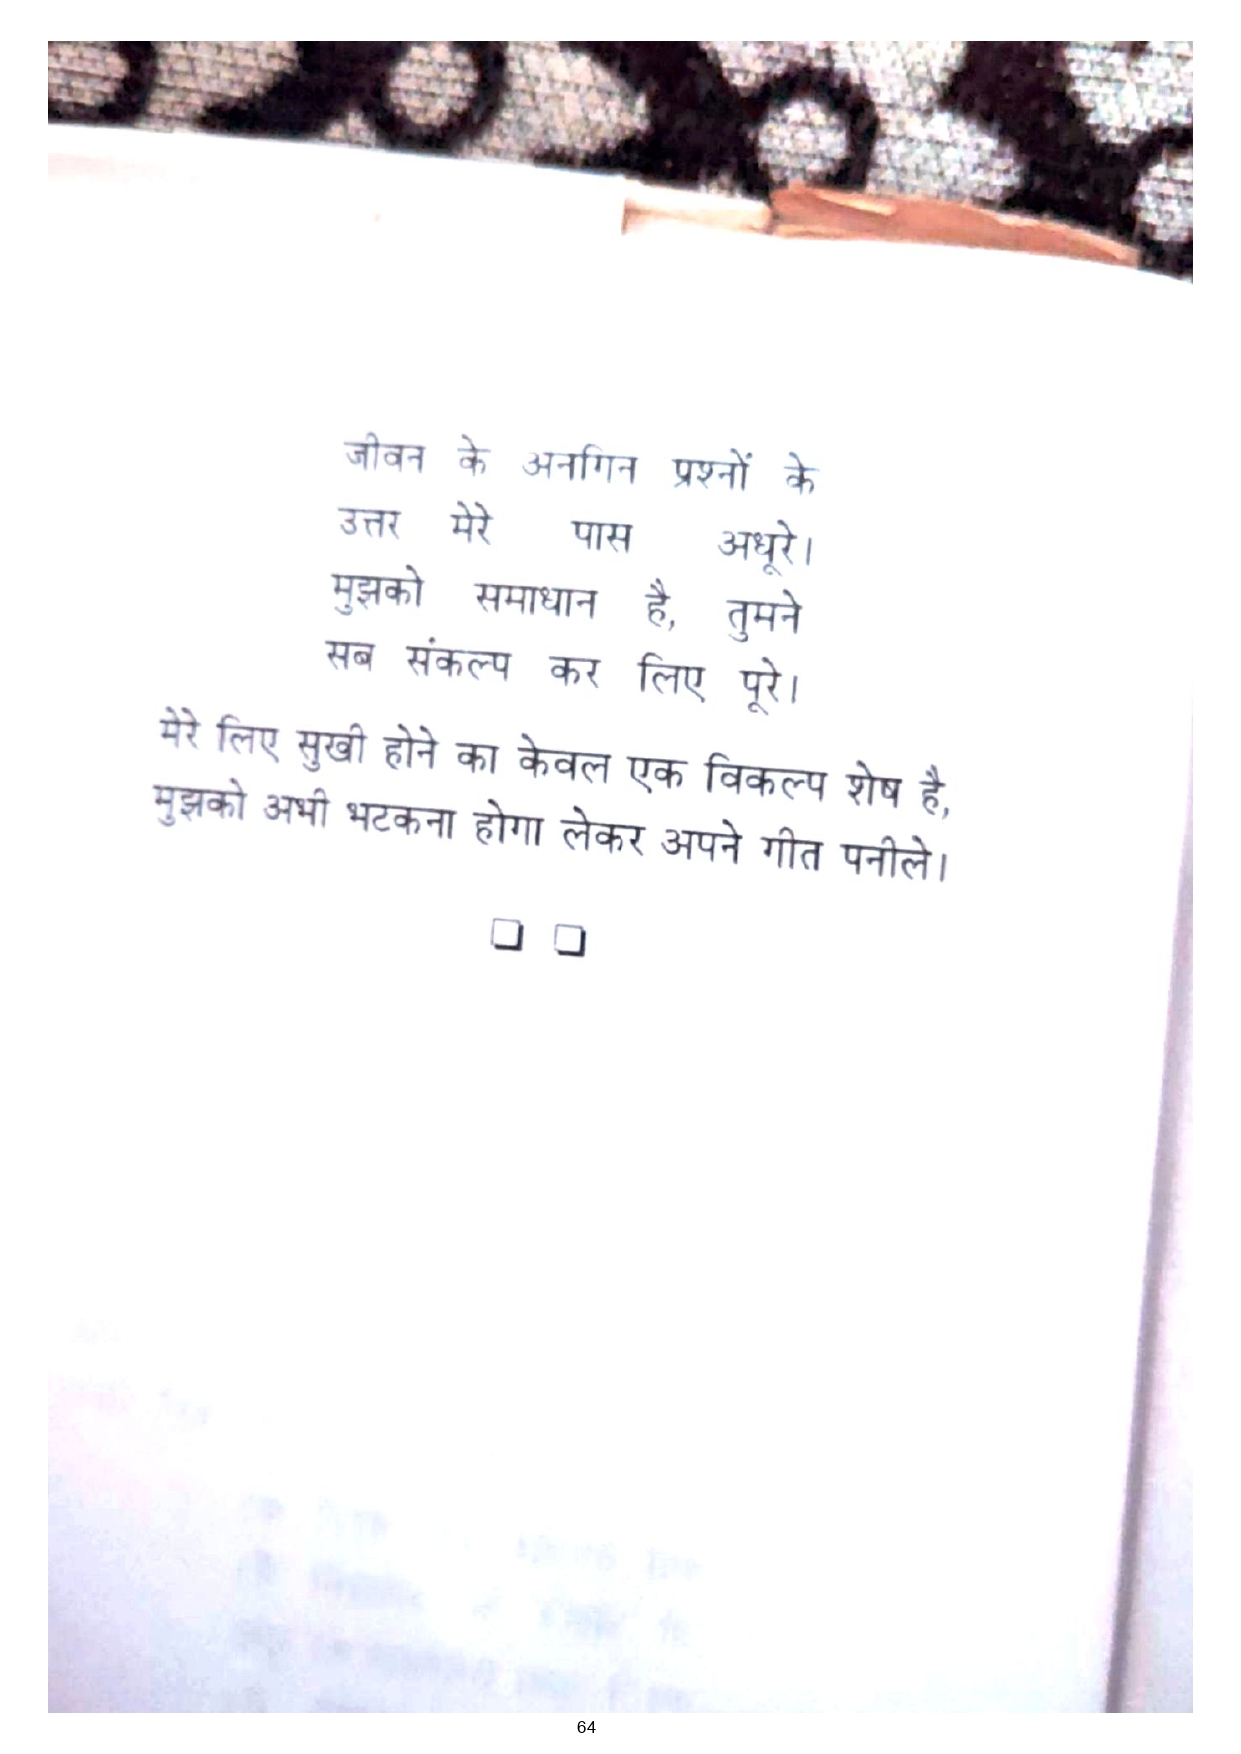 जीवन के अनगिन प्रश्नों के
उत्तर मेरे पास अधूरे।
मुझको समाधान है, तुमने
सब संकल्प कर लिए पूरे।
मेरे लिए सुखी होने का केवल एक विकल्प शेष है,
मुझको अभी भटकना होगा लेकर अपने गीत पनीले।
64